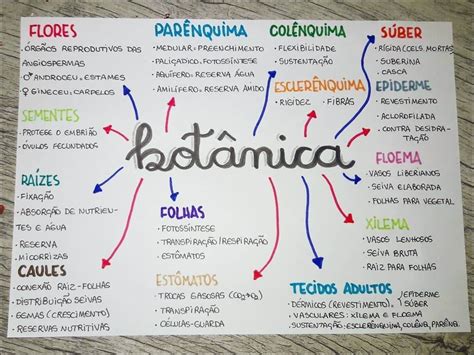 FLORES
• ÓRGÃOS REPRODUTIVOS DAS
ANGIOSPERMAS
♂ ANDROCEU: ESTAMES
♀ GINECEU: CARPELOS
PARÊNQUIMA
• MEDULAR: PREENCHIMENTO
• PALIÇADICO: FOTOSSÍNTESE
• AQUÍFERO: RESERVA ÁGUA
• AMILÍFERO: RESERVA AMIDO
COLÊNQUIMA
• FLEXIBILIDADE
• SUSTENTAÇÃO
SÚBER
• RÍGIDA (CELS. MORTAS)
• SUBERINA
• CASCA
ESCLERÊNQUIMA
• RIGIDEZ • FIBRAS
EPIDERME
• REVESTIMENTO
• ACLOROFILADA
• CONTRA DESIDRA-
TAÇÃO
SEMENTES
• PROTEGE O EMBRIÃO
• ÓVULOS FECUNDADOS
botânica
FLOEMA
• VASOS LIBERIANOS
• SEIVA ELABORADA
• FOLHAS PARA VEGETAL
RAÍZES
• FIXAÇÃO
• ABSORÇÃO DE NUTRIEN-
TES E ÁGUA
• RESERVA
• MICORRIZAS
FOLHAS
• FOTOSSÍNTESE
• TRANSPIRAÇÃO/RESPIRAÇÃO
• ESTÔMATOS
XILEMA
• VASOS LENHOSOS
• SEIVA BRUTA
• RAIZ PARA FOLHAS
CAULES
• CONEXÃO RAIZ-FOLHAS
• DISTRIBUIÇÃO SEIVAS
• GEMAS (CRESCIMENTO)
• RESERVAS NUTRITIVAS
ESTÔMATOS
• TROCAS GASOSAS (CO₂→O₂)
• TRANSPIRAÇÃO
• CÉLULAS-GUARDA
TECIDOS ADULTOS
• DÉRMICOS (REVESTIMENTO): EPIDERME
SÚBER
• VASCULARES: XILEMA E FLOEMA
• SUSTENTAÇÃO: ESCLERÊNQUIMA, COLÊNQ, PARÊNQ.